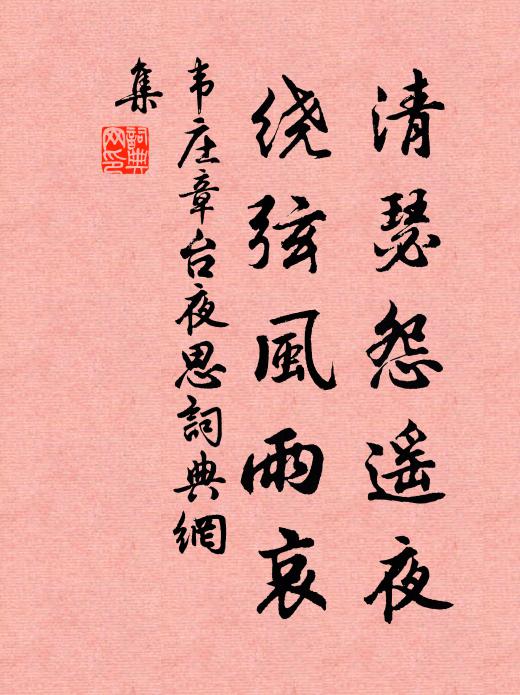 清瑟怨遥夜
绕弦風雨哀
韦庄章台夜思詞典網
集
詞典
网印